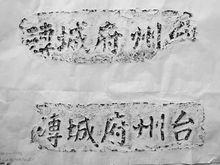 台州府城塼
台州府城塼